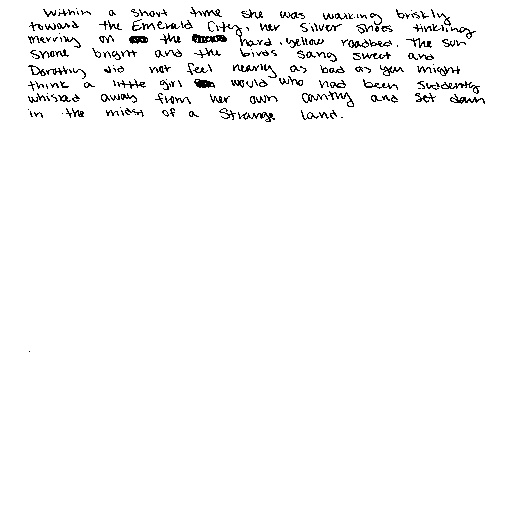 Within a short time she was walking briskly
toward the Emerald City, her Silver Shoes tinkling
merrily on the hard, yellow roadbed. The sun
shone bright and the birds sang sweet and
Dorothy did not feel nearly as bad as you might
think a little girl would who had been suddenly
whisked away from her own country and set down
in the midst of a Strange land.